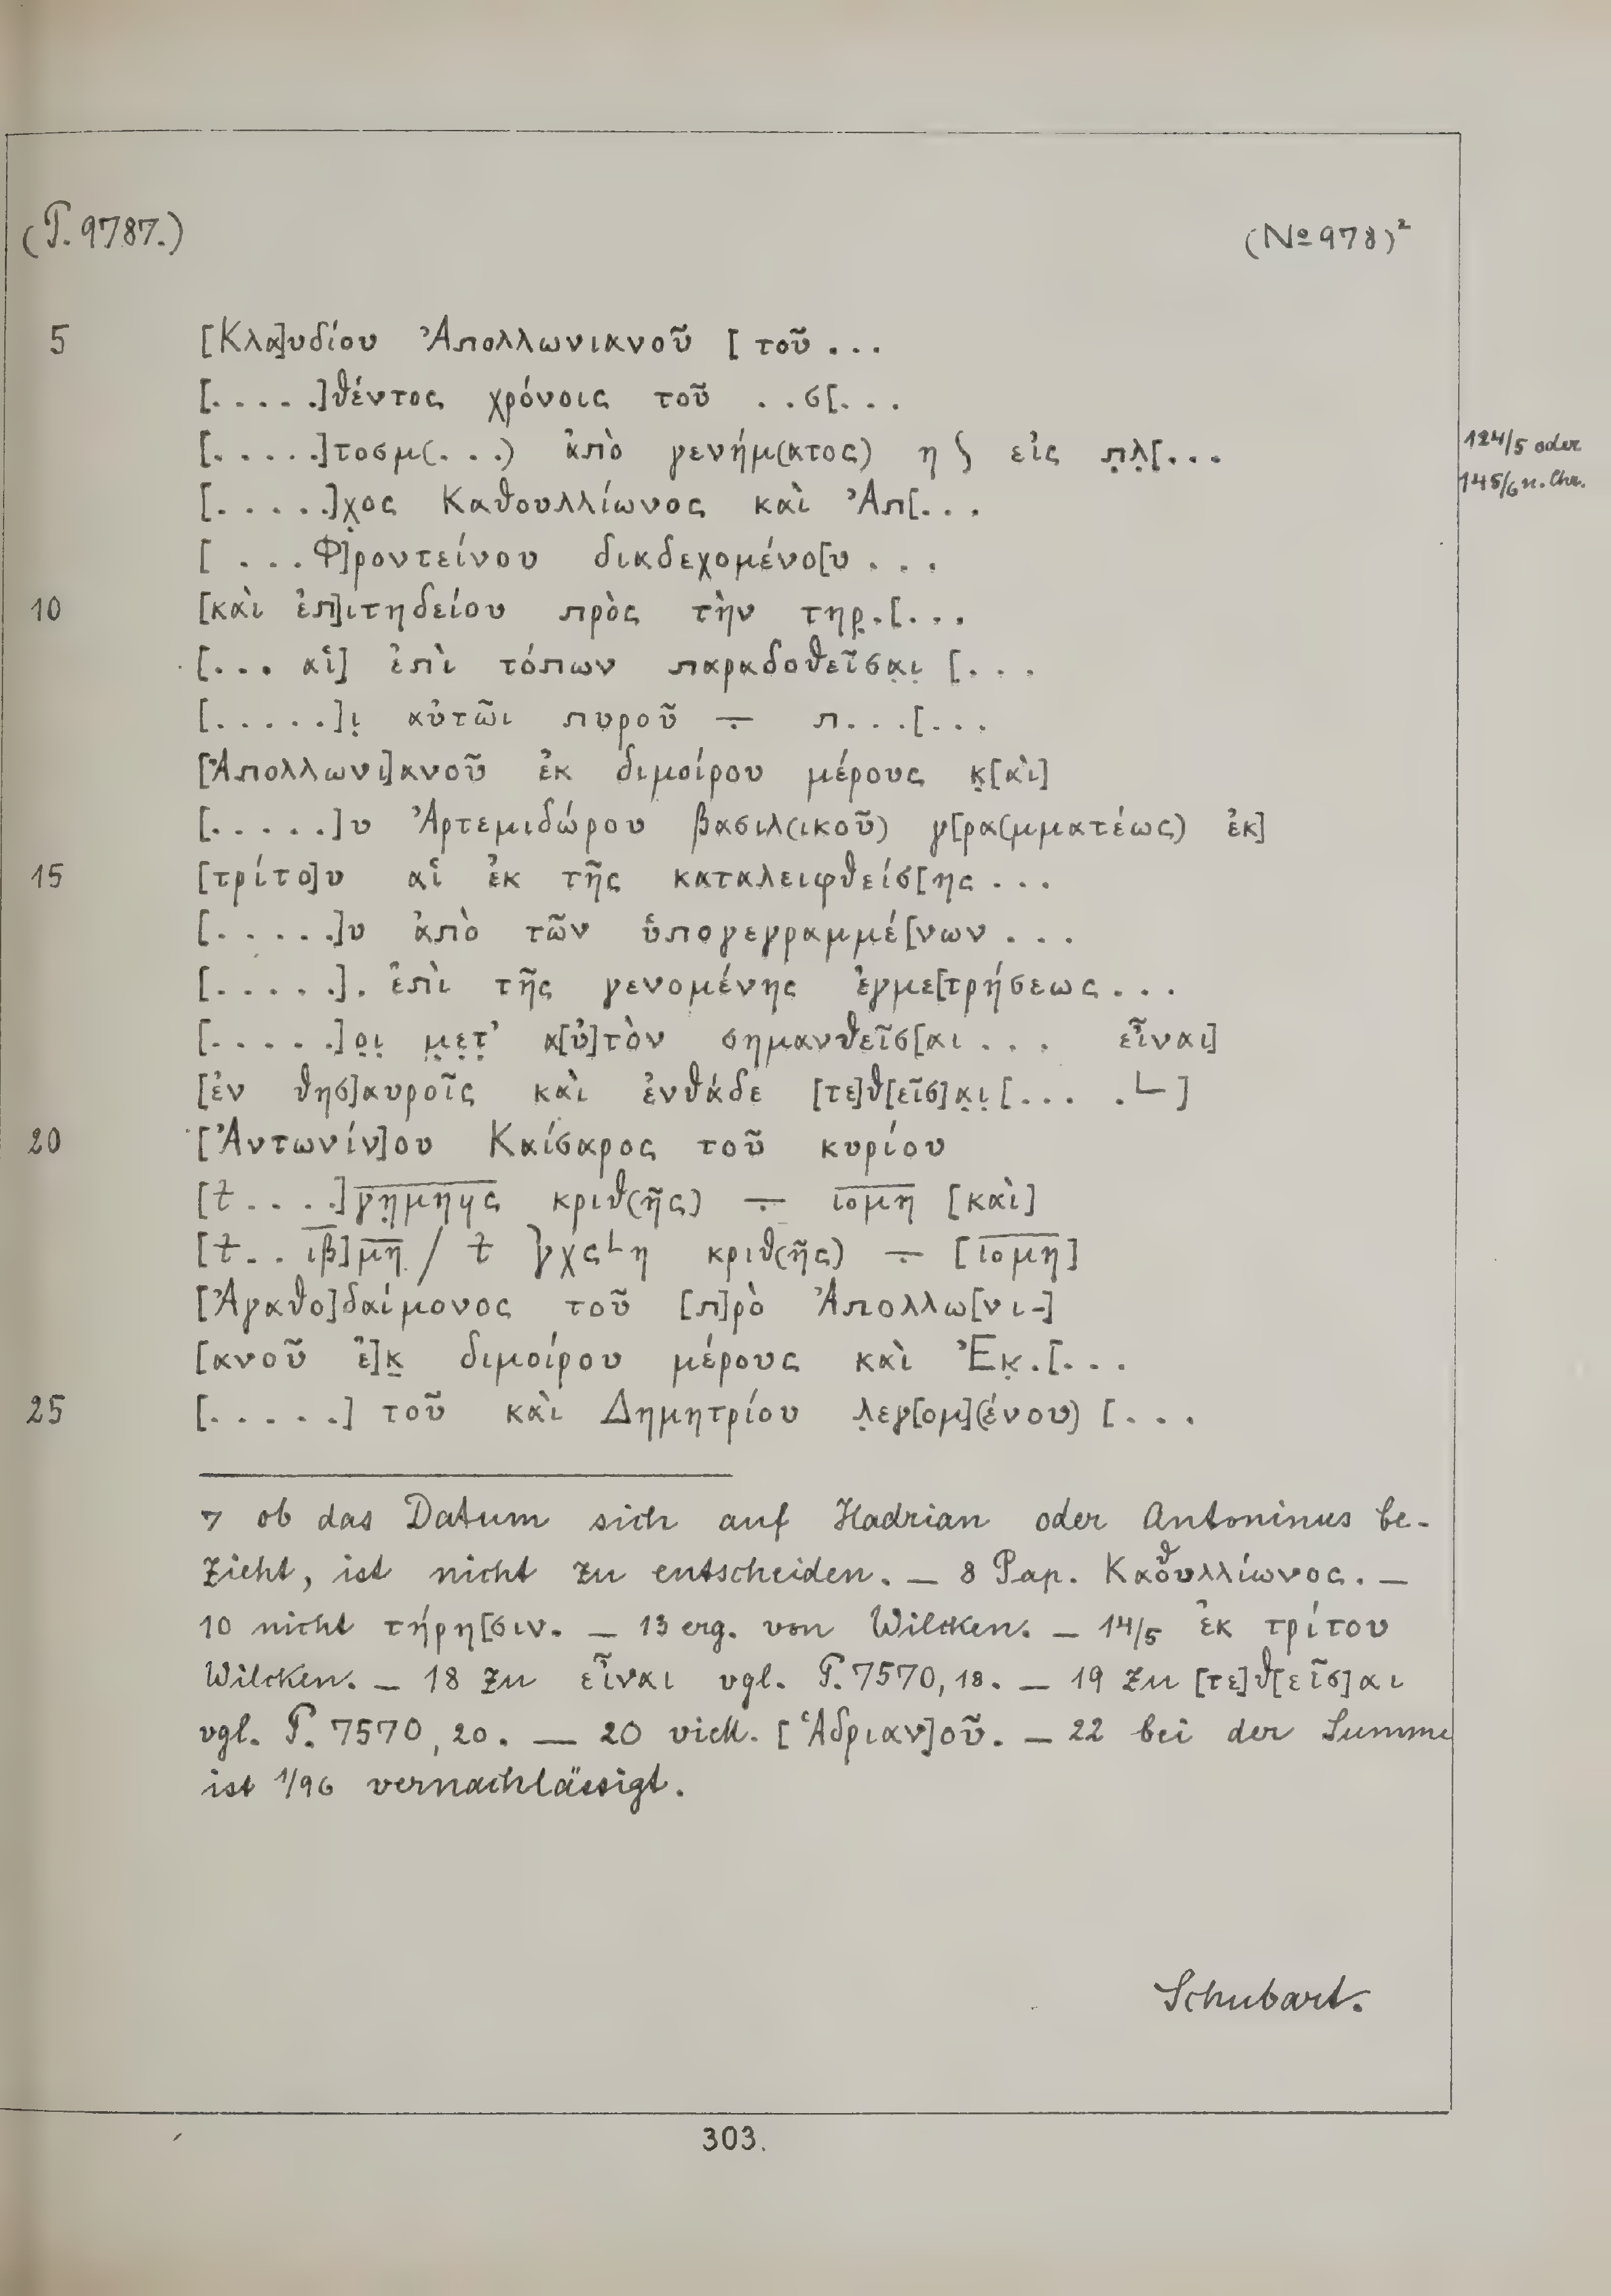 (P. 9787.)
(No 978)²
5 [Κλα]υδίου Ἀπολλωνιανοῦ [ τοῦ ...
[.....]θέντος χρόνοις τοῦ ..σ[...
[.....]τοσμ(...) ἀπὸ γενήμ(ατος) η ʃ εἰς π̣λ̣[...
124/5 oder
145/6 n. Chr.
[.....]χ̣ος Καθουλλίωνος καὶ Ἀπ[...
[ ...Φ]ροντείνου διαδεχομένο[υ ...
10 [καὶ ἐπ]ιτηδείου πρὸς τὴν τηρ̣.[...
[... αἱ] ἐπὶ τόπων παραδοθεῖσα̣ι̣ [...
[.....]ι̣ αὐτῶι πυροῦ ∸ π...[...
[Ἀπολλωνι]ανοῦ ἐκ διμοίρου μέρους κ̣[αὶ]
[.....]υ Ἀρτεμιδώρου βασιλ(ικοῦ) γ[ρα(μματέως) ἐκ]
15 [τρίτο]υ αἱ ἐκ τῆς καταλειφθείσ[ης ...
[.....]υ ἀπὸ τῶν ὑπογεγραμμέ[νων ...
[.....]. ἐπὶ τῆς γενομένης ἐγμε[τρήσεως ...
[.....]ο̣ι̣ μ̣ε̣τ̣’ α[ὐ]τὸν σημανθεῖσ[αι ... εἶναι]
[ἐν θησ]αυροῖς καὶ ἐνθάδε [τε]θ[εῖσ]α̣ι̣ [... .∟]
20 [Ἀντωνίν]ου Καίσαρος τοῦ κυρίου
[ŧ ....]γη̣μηϥς κριθ(ῆς) ∸ ιομη [καὶ]
[ŧ .. ιβ]μη / ŧ Ͱγχς∟η κριθ(ῆς) ∸ [ιομη]
[Ἀγαθο]δαίμονος τοῦ [π]ρὸ Ἀπολλω[νι-]
[ανοῦ ἐ]κ̣ διμοίρου μέρους καὶ Ἐκ̣.[...
25 [.....] τοῦ καὶ Δημητρίου λ̣εγ[ομ](ένου) [...
7 ob das Datum sich auf Hadrian oder Antoninus be-
zieht, ist nicht zu entscheiden. — 8 Pap. Καθουλλίωνος. —
10 nicht τήρη[σιν. — 13 erg. von Wilcken. — 14/5 ἐκ τρίτου
Wilcken. — 18 zu εἶναι vgl. P. 7570, 18. — 19 zu [τε]θ[εῖσ]αι
vgl. P. 7570, 20. — 20 viell. [Ἁδριαν]οῦ. — 22 bei der Summe
ist 1/96 vernachlässigt.
Schubart.
303.